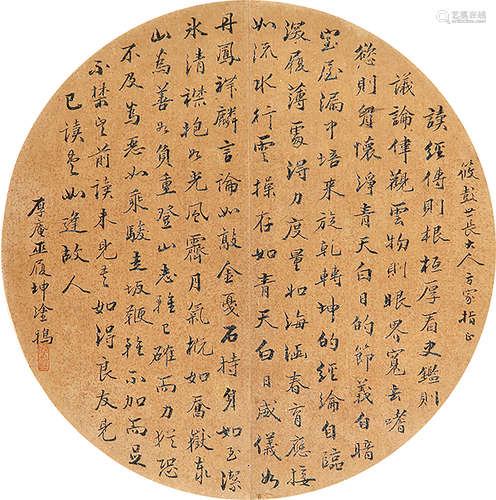 艺狐在线
artfoxlive.com
筱彭世長大人方家指正
讀經傳則根柢厚看史鑑則
議論偉觀雲物則眼界寬去嗜
慾則胷懷淨青天白日的節義自暗
室屋漏中培來旋乾轉坤的經綸自臨
深履薄處得力度量如海涵春育應接
如流水行雲操存如青天白日威儀如
丹鳳祥麟言論如敲金戛石持身如玉潔
氷清襟抱如光風霽月氣概如喬嶽泰
山為善如負重登山志雖已確而力猶恐
不及為惡如乘駿走坂鞭雖不加而足
不禁其前讀未見書如得良友見
已讀書如逢故人
摩庵巫履坤塗鴉